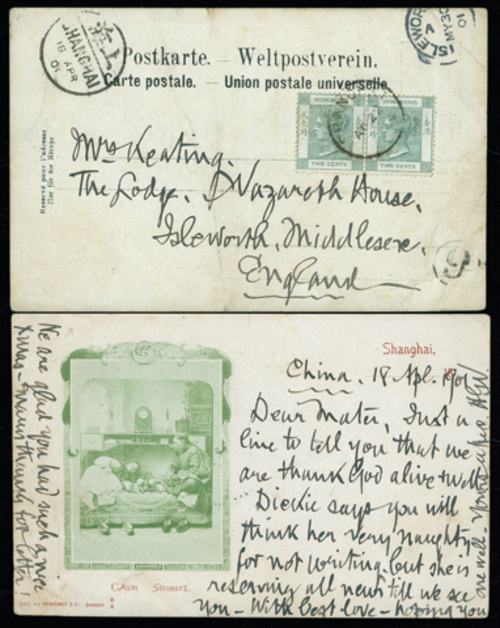 SHANGHAI
上海
18 APR
01
ISLEWORTH
MY 30
01
Postkarte. – Weltpostverein.
Carte postale. – Union postale universelle.
Réservé pour l'adresse
Nur für die Adresse
HONGKONG
TWO CENTS
HONGKONG
TWO CENTS
Mrs Keating.
The Lodge, Nazareth House,
Isleworth, Middlesex,
England
Shanghai,
China. 18 Apl. 1901
Dear Mater, Just a
line to tell you that we
are thank God alive & well
Dickie says you will
think her very naughty
for not writing. but she is
reserving all news till we see
you – With best love – hoping you
are well –
We are glad you had such a nice
Xmas – many thanks for letter!
Opium Smokers.